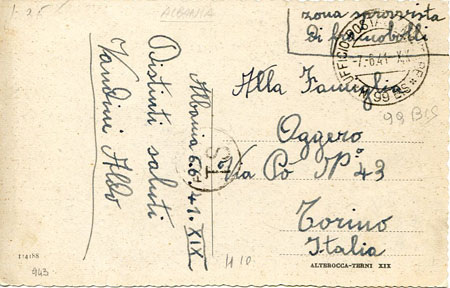 1-25
ALBANIA
zona sprovvista
di francobolli
UFFICIO POSTALE
-7.6.41 XIX
99 BIS
99 Bis
Albania 6.6.1941. XIX
Distinti saluti
Vandini Aldo
Alla Famiglia
Oggero
Via Po N° 43
Torino
Italia
H10
943
ALTEROCCA-TERNI XIX